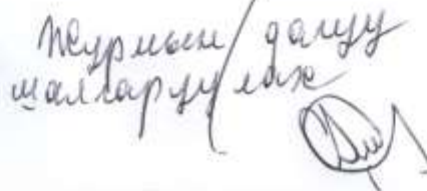 Журмын дагуу
шалгаруулах